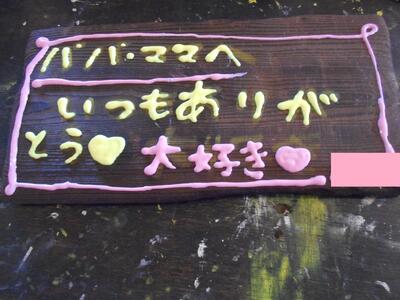 パパ・ママへ
いつもありが
とう♥大好き♥